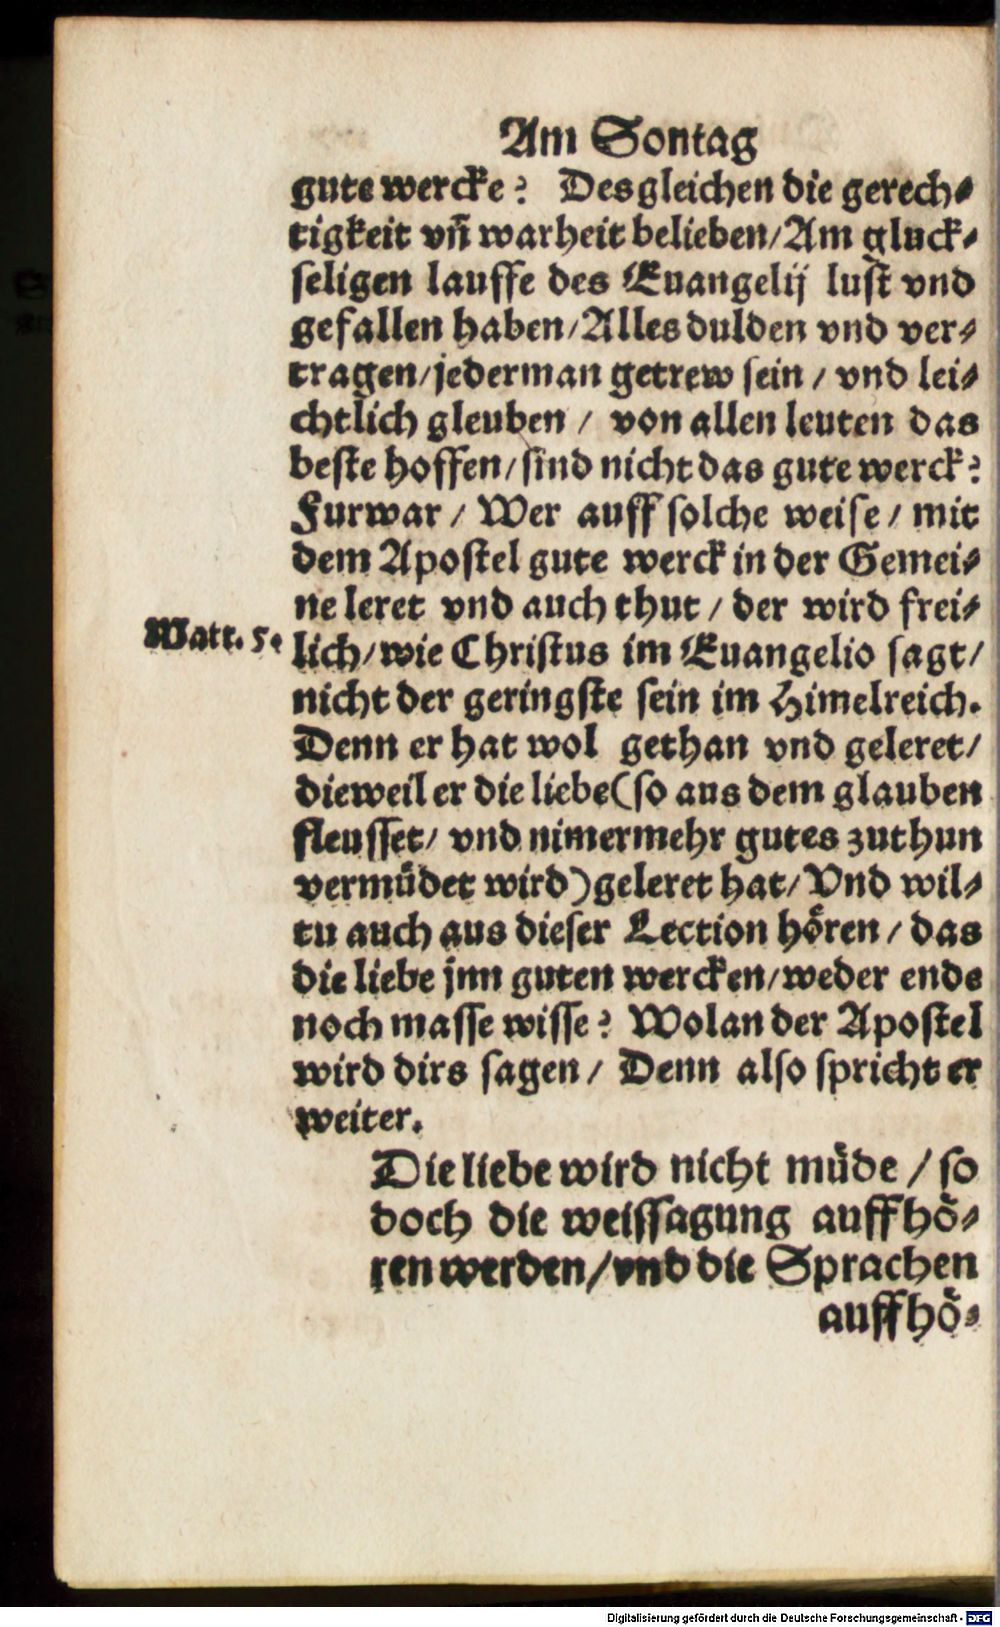 Am Sontag
gute wercke? Desgleichen die gerech-
tigkeit vñ warheit belieben/Am gluck-
seligen lauffe des Euangelij lust vnd
gefallen haben/Alles dulden vnd ver-
tragen/jederman getrew sein / vnd lei-
chtlich gleuben / von allen leuten das
beste hoffen/sind nicht das gute werck?
Furwar / Wer auff solche weise / mit
dem Apostel gute werck in der Gemei-
ne leret vnd auch thut / der wird frei-
Matt. 5.
lich/wie Christus im Euangelio sagt/
nicht der geringste sein im Himelreich.
Denn er hat wol gethan vnd geleret/
dieweil er die liebe(so aus dem glauben
fleusset/ vnd nimermehr gutes zuthun
vermüdet wird)geleret hat/Vnd wil-
tu auch aus dieser Lection hören / das
die liebe jnn guten wercken/weder ende
noch masse wisse? Wolan der Apostel
wird dirs sagen/ Denn also spricht er
weiter.
Die liebe wird nicht müde / so
doch die weissagung auffhö-
ren werden/vnd die Sprachen
auffhö-
Digitalisierung gefördert durch die Deutsche Forschungsgemeinschaft - DFG